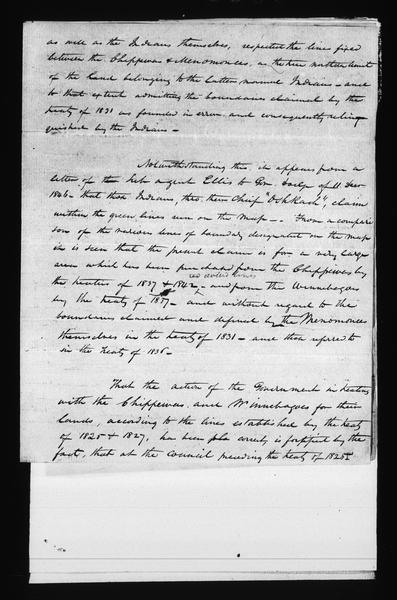 as well as the Indians themselves, respected the lines fixed
between the Chippewas & Menomonees, as the true northern limit
of the lands belonging to the latter named Indians - and
to that extent admitting the boundaries claimed by the
treaty of 1831 as founded in error and consequently relin-
quished by the Indians -
Notwithstanding this, it appears from a
letter of the Sub agent Ellis to Gov. Dodge of 11 Decr
1846 - that those Indians, thro. their Chief "Oshkosh" claim
within the green lines run on the map - . From a compari
son of the various lines of boundary designated on the map
it is seen that the present claim is for a very large
area which has been purchased from the Chippewas by
red dotted lines
the treaties of 1837 & 1842 - and from the Winnebagoes
by the treaty of 1837 - and without regard to the
boundaries claimed and defined by the Menomonees
themselves in the treaty of 1831 - and those referred to
in the treaty of 1836 -
That the action of the Government in treating
with the Chippewas and Winnebagoes for their
lands, according to the lines established by the treaty
of 1825 & 1827, has been correct, is fortified by the
fact, that at the council preceding the treaty of 1825